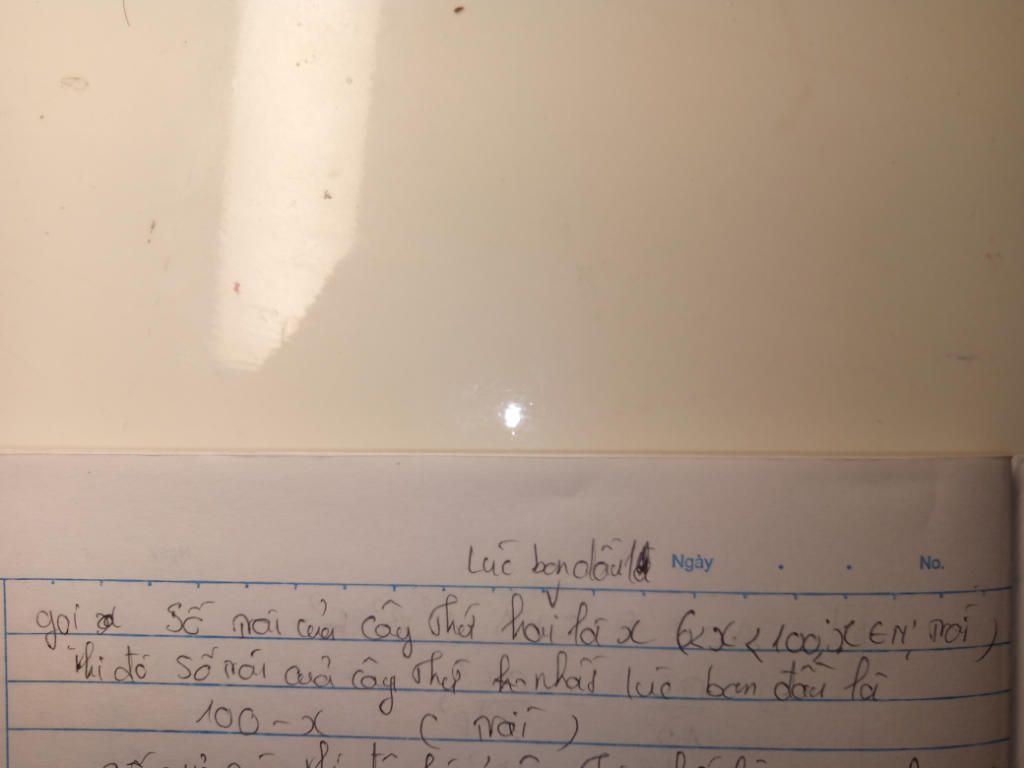 Lúc ban đầu Ngày No.
gọi số trái của cây thứ hai là x (x < 100; x ∈ N, trái)
khi đó số trái của cây thứ nhất lúc ban đầu là
100 - x (trái)